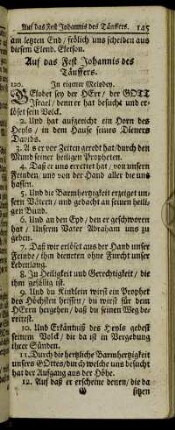 Auf das Fest Johannis des Täuffers. 145
am letzten End / frölich uns scheiden aus
diesem Elend. Eleison.
Auf das Fest Johannis des
Täuffers.
120. In eigener Melodey.
GElobet sey der HErr / der GOTT
Israel / denn er hat besucht und er-
löset sein Volck.
2. Und hat aufgericht ein Horn des
Heyls / in dem Hause seines Dieners
Davids.
3. Als er vor Zeiten geredt hat / durch den
Mund seiner heiligen Propheten.
4. Daß er uns errettet hat / von unsern
Feinden / und von der Hand aller die uns
hassen.
5. Und die Barmhertzigkeit erzeiget un-
sern Vätern / und gedacht an seinen heili-
gen Bund.
6. Und an den Eyd / den er geschworen
hat / Unserm Vater Abraham uns zu
geben.
7. Daß wir erlöset aus der Hand unser
Feinde / ihm dieneten ohne Furcht unser
Lebenlang.
8. In Heiligkeit und Gerechtigkeit / die
ihm gefällig ist.
9. Und du Kindlein wirst ein Prophet
des Höchsten heissen / du wirst für dem
HErrn hergehen / daß du seinen Weg be-
reitest.
10. Und Erkäntniß des Heyls gebest
seinem Volck / die da ist in Vergebung
ihrer Sünden.
11. Durch die hertzliche Barmhertzigkeit
unsers GOttes / durch welche uns besucht
hat der Aufgang aus der Höhe.
12. Auf daß er erscheine denen / die da
sitzen